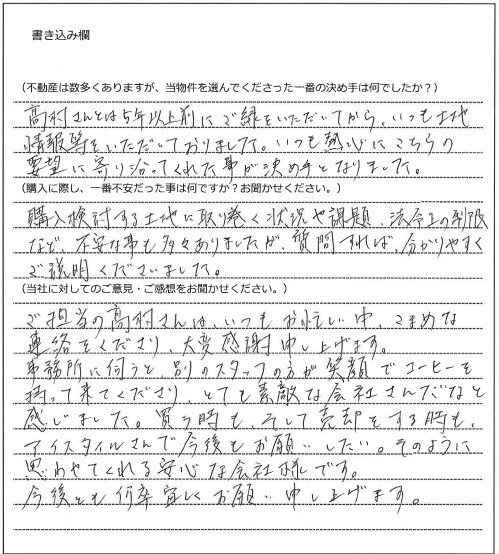 書き込み欄
（不動産は数多くありますが、当物件を選んでくださった一番の決め手は何でしたか？）
高村さんとは5年以上前にご縁をいただいてから、いつも土地
情報等をいただいておりました。いつも熱心にこちらの
要望に寄り沿ってくれた事が決め手となりました。
（購入に際し、一番不安だった事は何ですか？お聞かせください。）
購入検討する土地に取り巻く状況や課題、法令上の制限
など、不安な事も多々ありましたが、質問すれば、分かりやすく
ご説明くださいました。
（当社に対してのご意見・ご感想をお聞かせください。）
ご担当の高村さんは、いつもお忙しい中、こまめな
連絡をくださり、大変感謝申し上げます。
事務所に伺うと、別のスタッフの方が笑顔でコーヒーを
持って来てくださり、とても素敵な会社さんだなと
感じました。買う時も、そして売却をする時も、
アイスタイルさんで今後もお願いしたい。そのように
思わせてくれる安心な会社様です。
今後とも何卒宜しくお願い申し上げます。